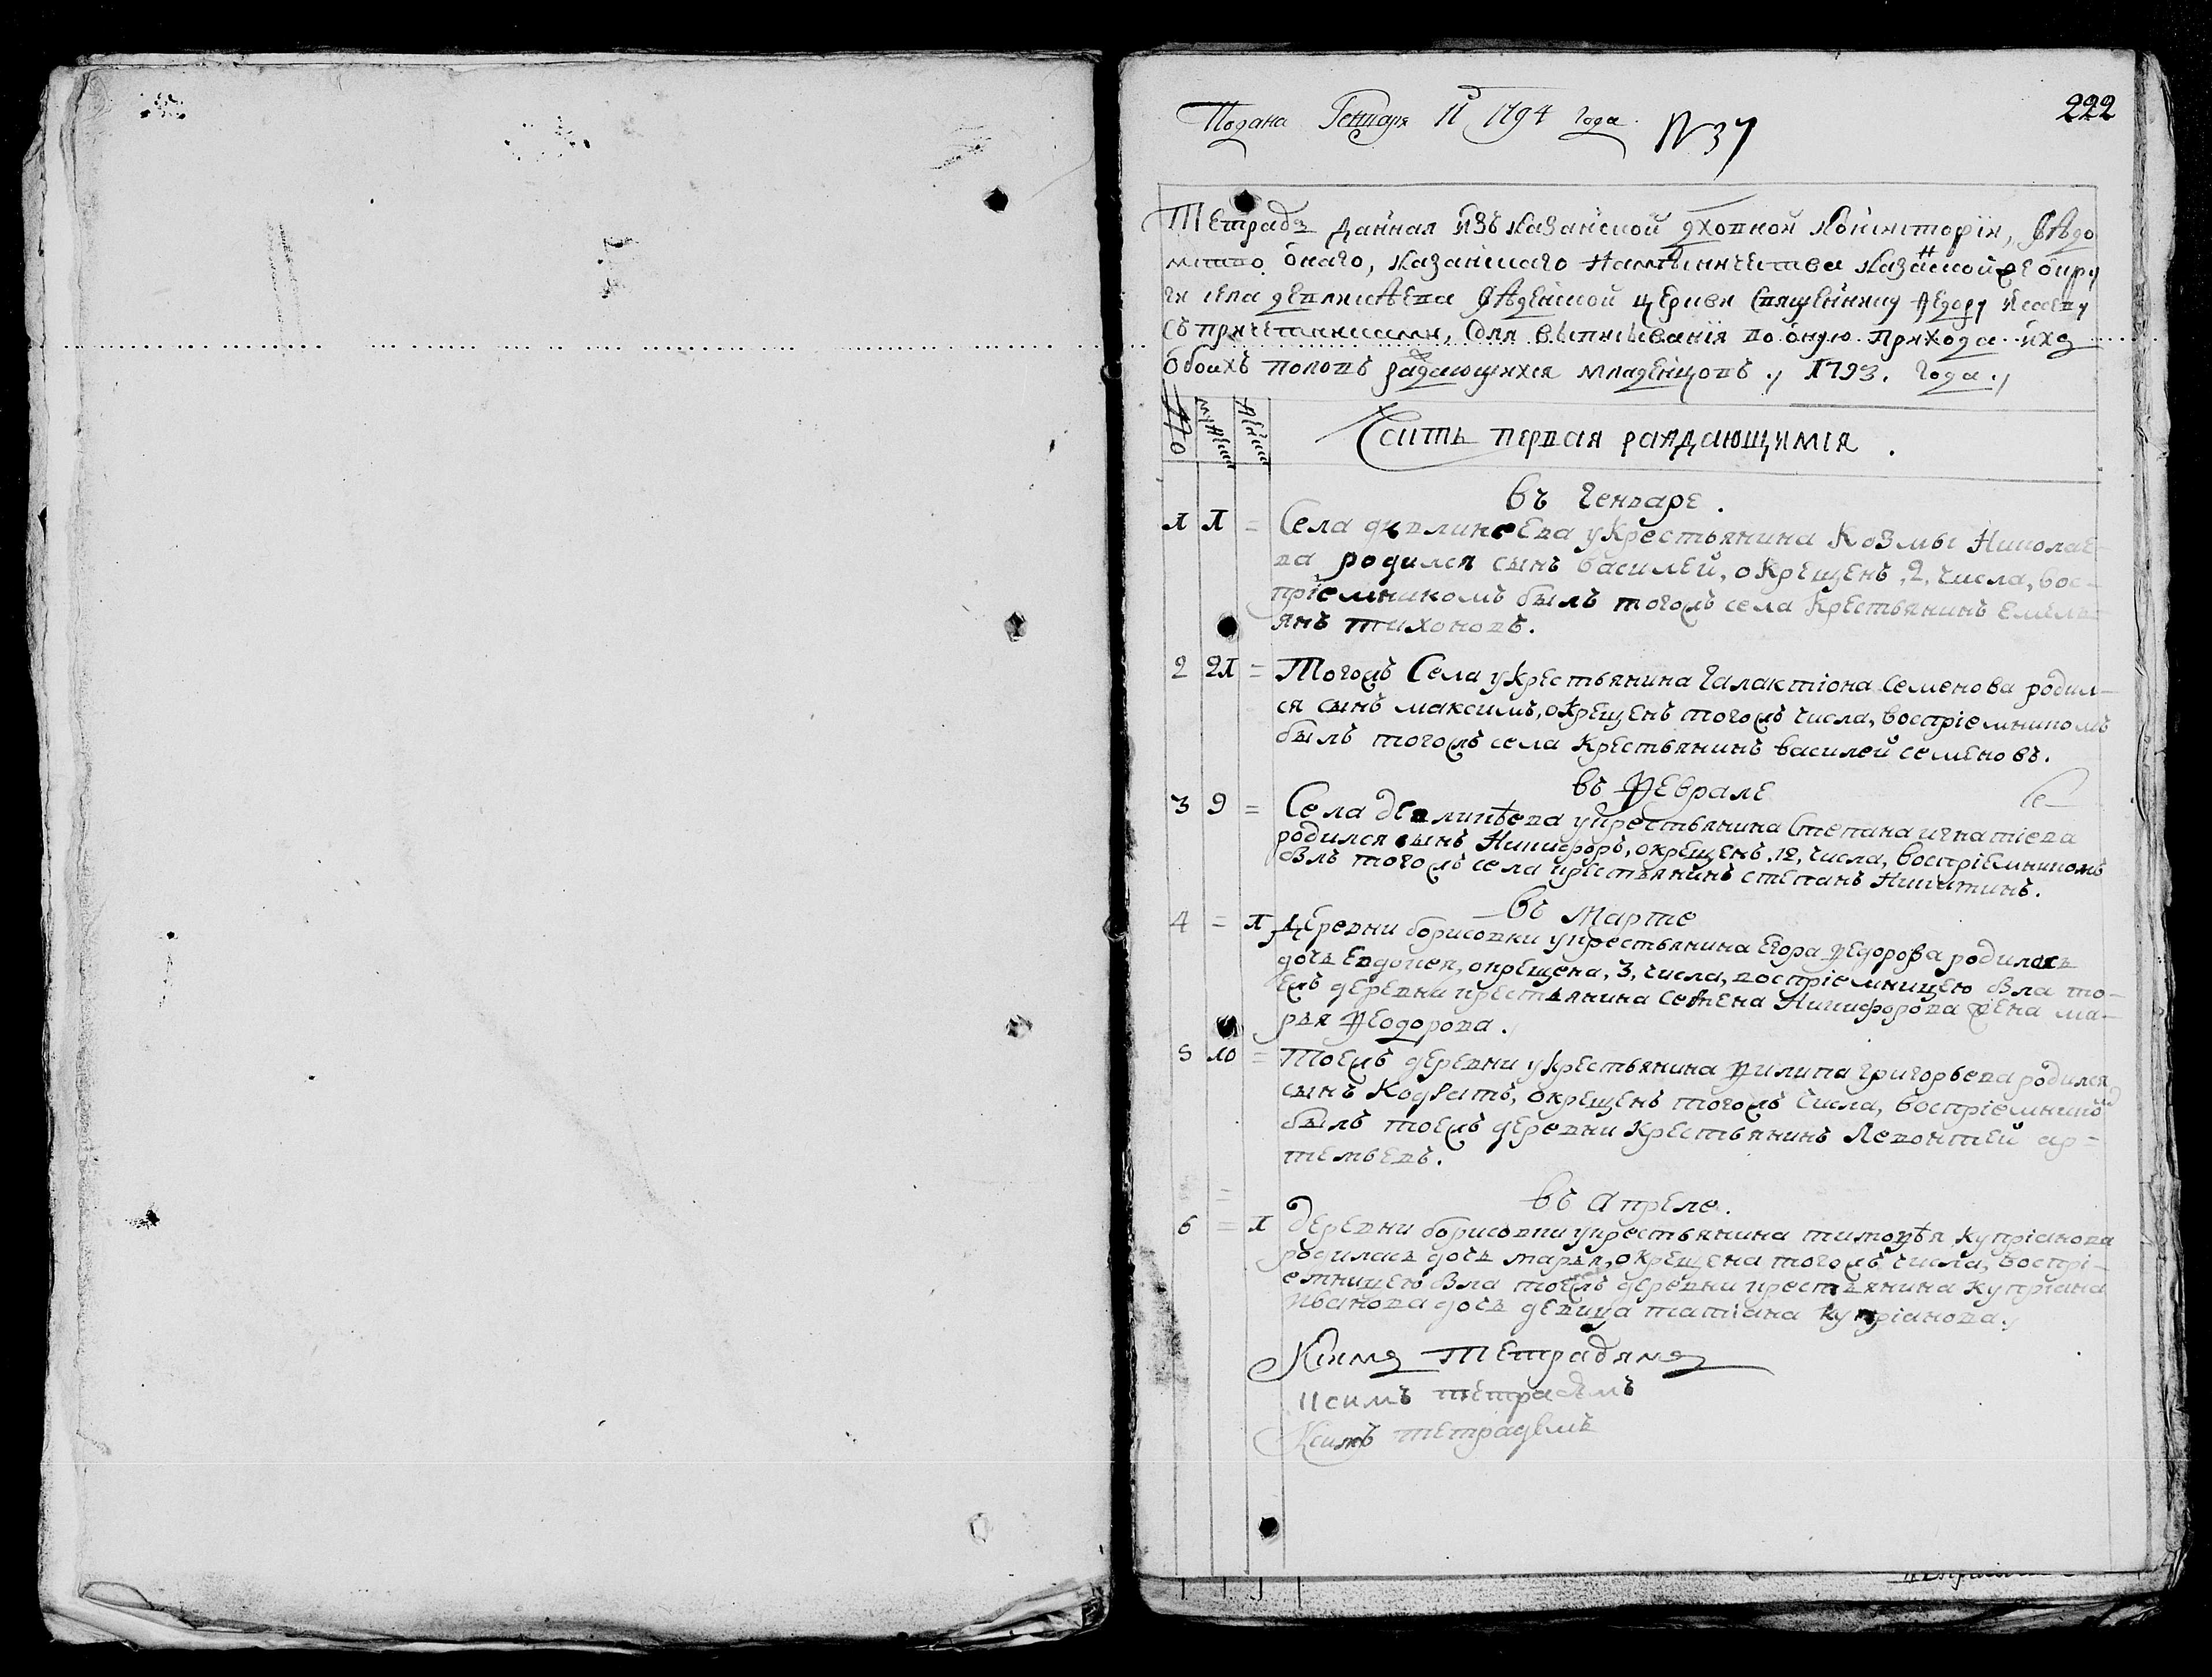 Подана Генваря 11г 1794 года.
N 37
222
Тетрадь данная изъ казанской дховной консисторіи, вѣдо
мства онаго, казанскаго намѣсничества казанской же окру
ги села девликѣева введенской церкви священнику ѳедору
съ причетниками, для выписыванія во оную прихода ихъ
обоихъ половъ раждающихся младенцовъ ., 1793. года.,
No
мужеска
женска
Часть первая раждающимся.
въ генваре.
1 1 = Села дивликеева у крестьянина Козмы Николае-
ва родился сынъ василей, окрещенъ, 2, числа, вос-
пріемникомъ былъ тогожъ села крестьянинъ емель-
янъ тихоновъ.
2 21 = Тогожъ Села у крестьянина галактіона семенова родил-
ся сынъ максимъ, окрещенъ тогожъ числа, воспріемникомъ
былъ тогожъ села крестьянинъ василей семеновъ.
въ Ѳеврале
3 9 = Села девликѣева у крестьянина Степана игнатіева
родился сынъ Никифоръ, окрещенъ, 12, числа, воспріемникомъ
былъ тогожъ села крестьянинъ степанъ Никитинъ.
въ Марте
4 = 1 Деревни борисовки у крестьянина Егора ѳедорова родилась
дочь Евдокея, окрещена, 3, числа, воспріемницею была то-
ежъ деревни крестьянина семена Никифорова жена ма-
рья ѳеодорова.
5 10 = Тоежъ деревни у крестьянина ѳилипа григорьева родился
сынъ Кодратъ, окрещенъ тогожъ числа, воспріемникъ
былъ тоежъ деревни крестьянинъ Левонтей ар-
темьевъ.
въ Апреле.
6 = 1 Деревни борисовки у крестьянина тимоѳѣя купріанова
родилась дочь марья, окрещена тогожъ числа, воспрі-
емницею была тоежъ деревни крестьянина купріана
Иванова дочь девица татіана купріанова.,
Ксимъ тетрадямъ
Ксимъ тетрадемъ
Ксимъ тетрадемъ